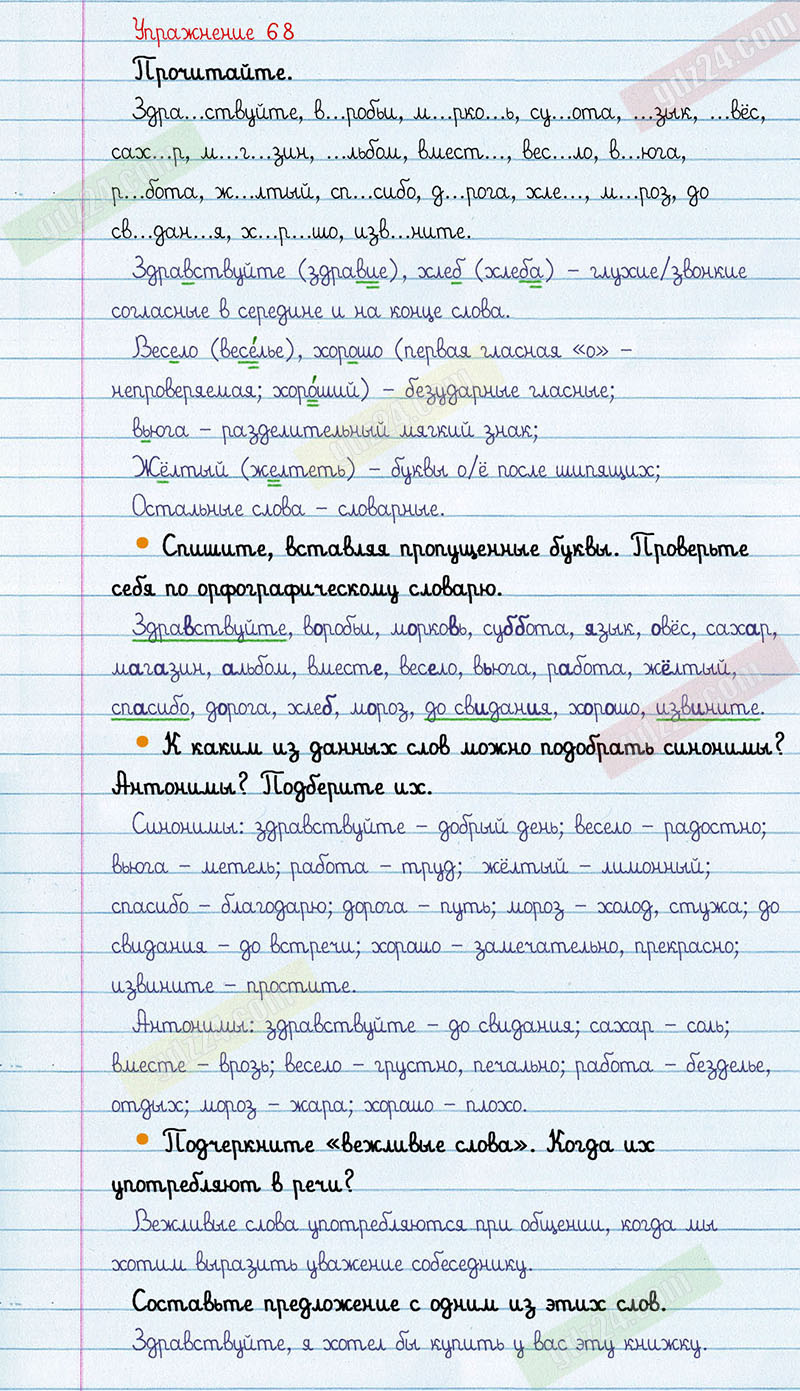 Упражнение 68
Прочитайте.
Здра...ствуйте, в...робьи, м...рко...ь, су...ота, ...зык, ...вёс,
сах...р, м...г...зин, ...льбом, вмест..., вес...ло, в...юга,
р...бота, ж...лтый, сп...сибо, д...рога, хле..., м...роз, до
св...дан...я, х...р...шо, изв...ните.
Здравствуйте (здравие), хлеб (хлеба) – глухие/звонкие
согласные в середине и на конце слова.
Весело (весе́лье), хорошо (первая гласная «о» –
непроверяемая; хоро́ший) – безударные гласные;
вьюга – разделительный мягкий знак;
Жёлтый (желтеть) – буквы о/ё после шипящих;
Остальные слова – словарные.
• Спишите, вставляя пропущенные буквы. Проверьте
себя по орфографическому словарю.
Здравствуйте, воробьи, морковь, суббота, язык, овёс, сахар,
магазин, альбом, вместе, весело, вьюга, работа, жёлтый,
спасибо, дорога, хлеб, мороз, до свидания, хорошо, извините.
• К каким из данных слов можно подобрать синонимы?
Антонимы? Подберите их.
Синонимы: здравствуйте – добрый день; весело – радостно;
вьюга – метель; работа – труд; жёлтый – лимонный;
спасибо – благодарю; дорога – путь; мороз – холод, стужа; до
свидания – до встречи; хорошо – замечательно, прекрасно;
извините – простите.
Антонимы: здравствуйте – до свидания; сахар – соль;
вместе – врозь; весело – грустно, печально; работа – безделье,
отдых; мороз – жара; хорошо – плохо.
• Подчеркните «вежливые слова». Когда их
употребляют в речи?
Вежливые слова употребляются при общении, когда мы
хотим выразить уважение собеседнику.
Составьте предложение с одним из этих слов.
Здравствуйте, я хотел бы купить у вас эту книжку.
gdz24.com
gdz24.com
gdz24.com
gdz24.com
gdz24.com
gdz24.com